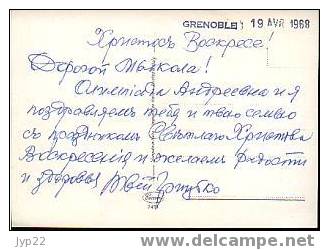 GRENOBLE, 19 AVR 1968
Христосъ Воскресе!
Дорогой Мыкола!
Олимпіада Андреевна и я
поздравляемъ тебя и твою семью
съ праздникомъ Свѣтлаго Христова
Воскресенія и желаемъ радости
и здоровья Твой
jyp22
delcampe.net